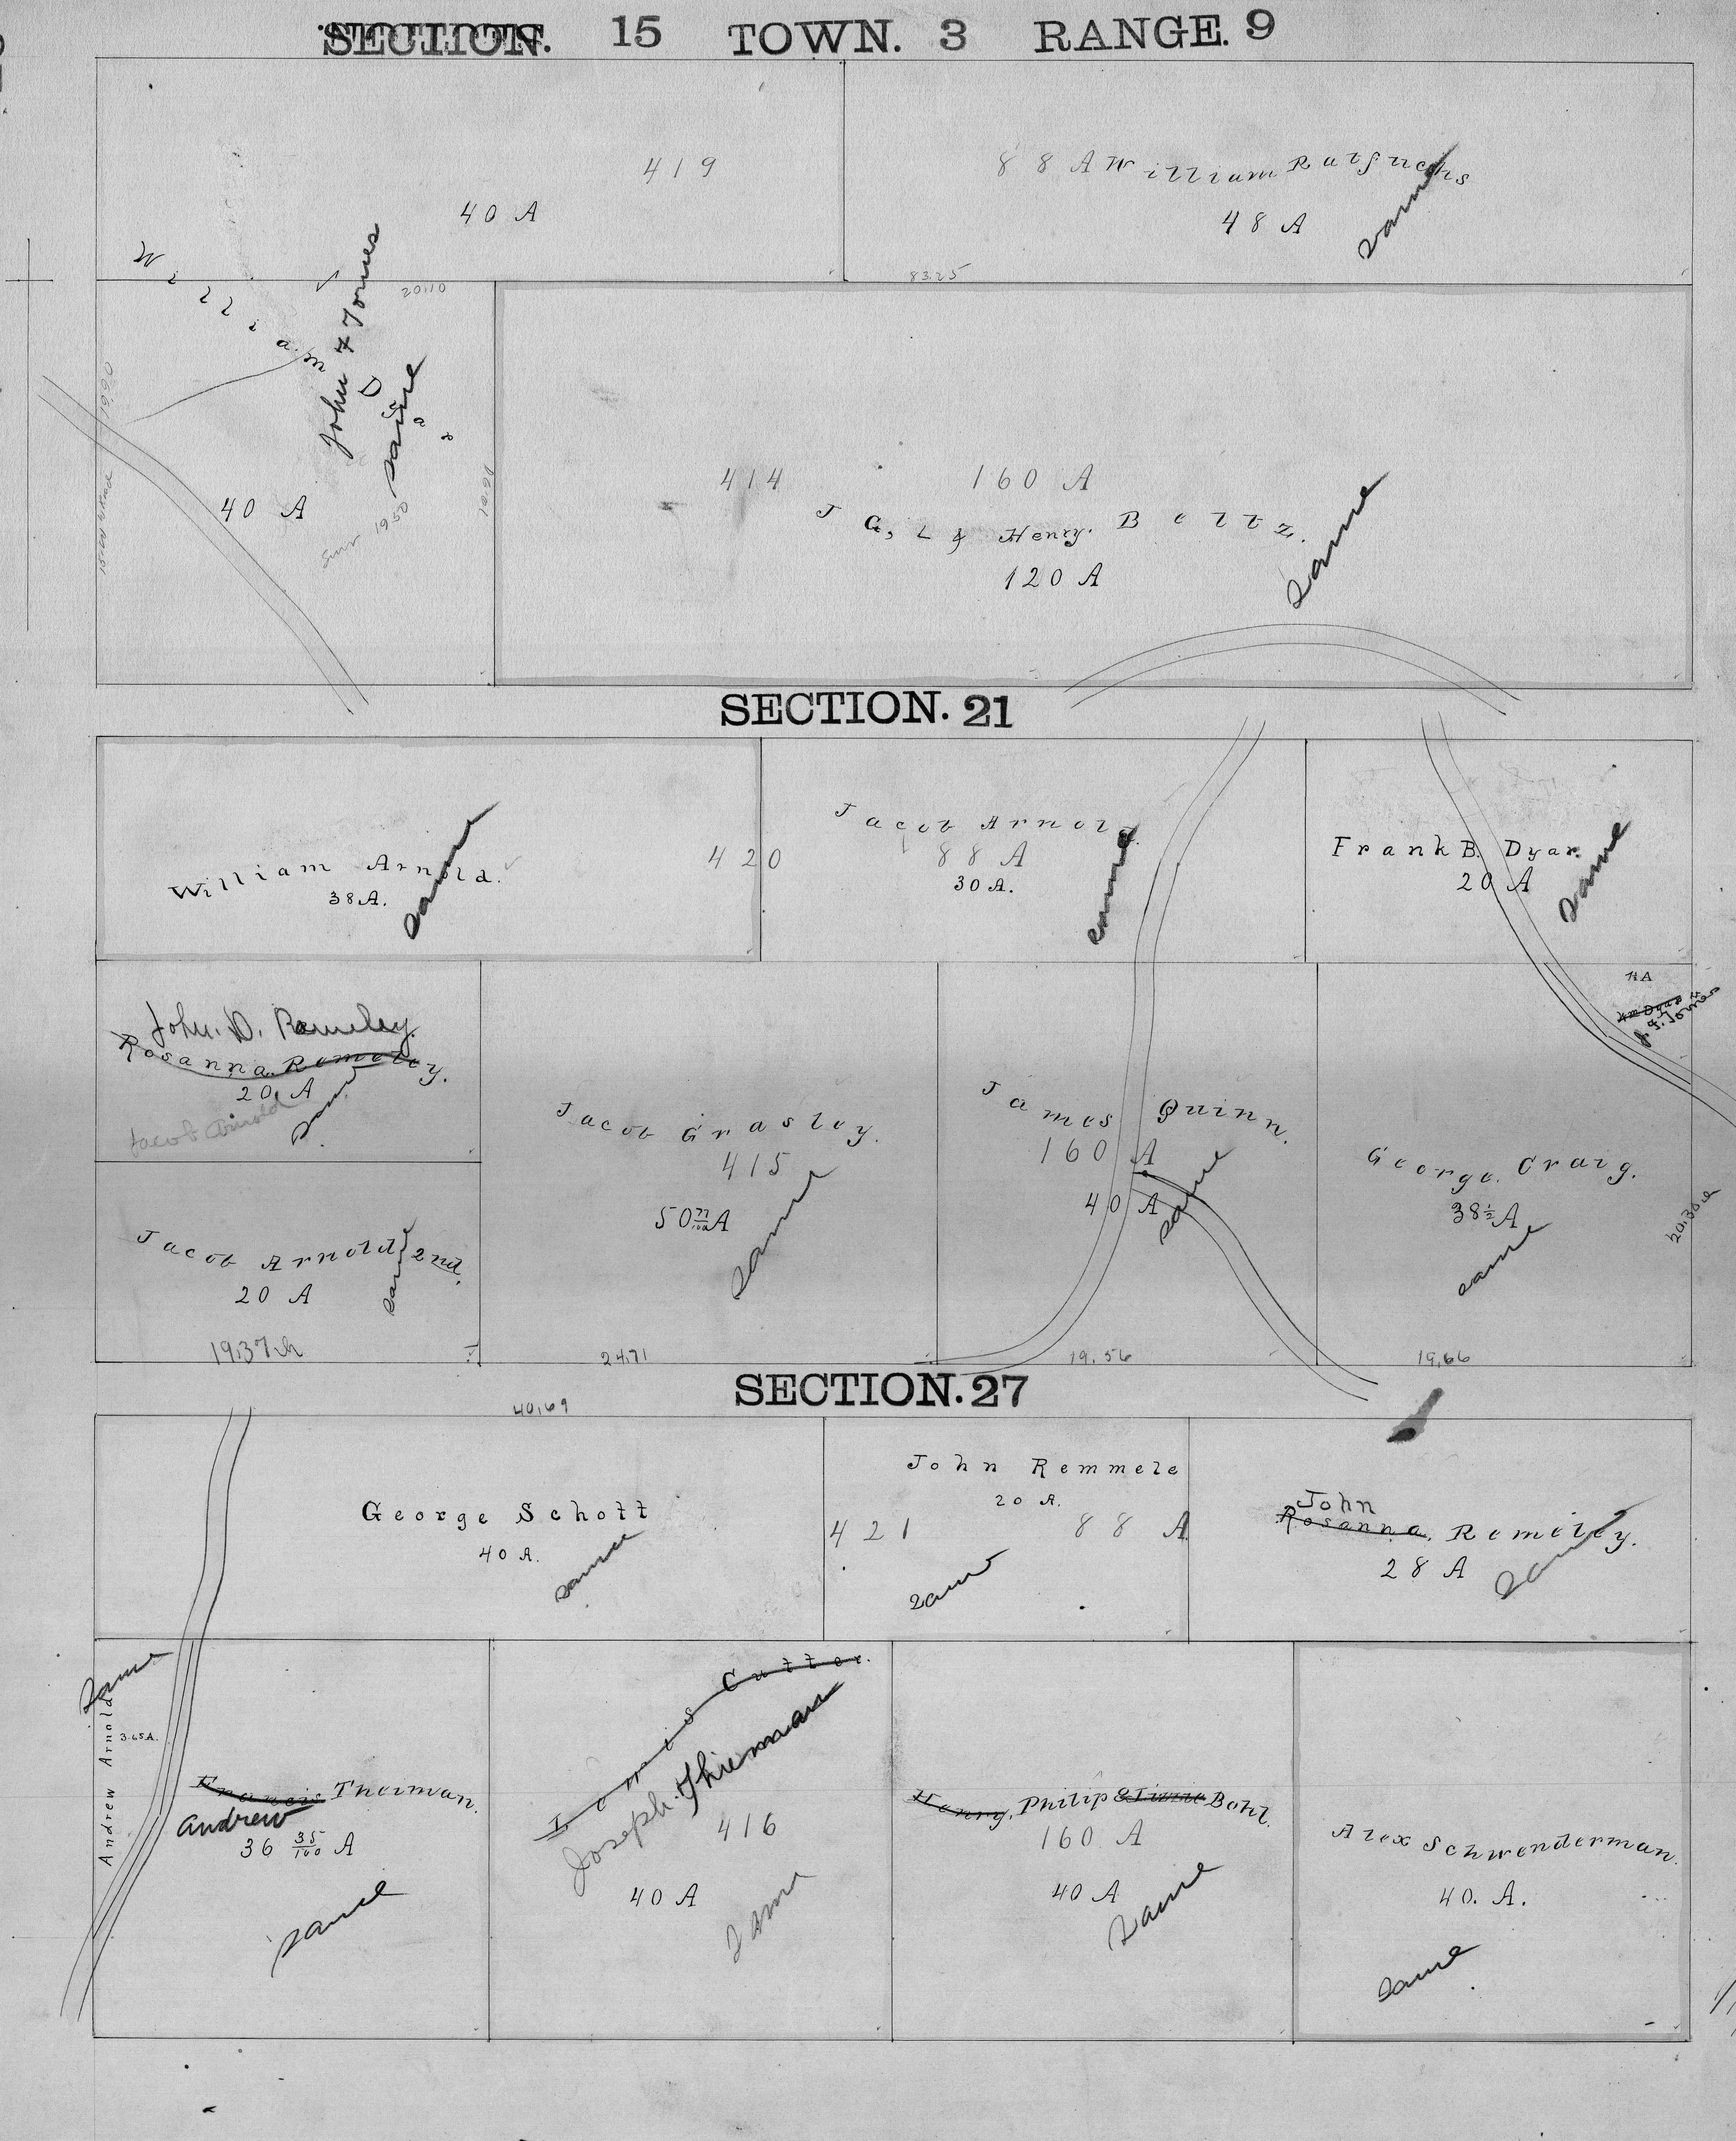 SECTION. 15 TOWN. 3 RANGE. 9
419
40 A
88 A William Ratfuchs
48 A
same
83.25
William Dyar
John F Jones
same
20.10
40 A
Surv 1950
414
160 A
J G, L & Henry. Beltz.
120 A
same
SECTION. 21
William Arnold.
38 A.
same
420
Jacob Arnold.
88 A
30 A.
same
Frank B. Dyar.
20 A
same
John. D. Remeley.
Rosanna. Remeley.
20 A
Jacob Arnold
same
Jacob Arnold 2nd.
20 A
same
19.37 ch
Jacob Grasley.
415
50 77/100 A
same
24.71
James Quinn.
160 A
40 A
same
19.56
1½ A
Wm Dyar
J. F. Jones
George. Craig.
38 ½ A
same
19.66
SECTION. 27
40.69
George Schott
40 A.
same
John Remmele
20 A.
421
88 A
same
John
Rosanna. Remeley.
28 A
same
same
Andrew Arnold
3.65 A.
Francis Theiman.
Andrew
36 35/100 A
same
Lewis Cutter.
Joseph. Thieman
416
40 A
same
Henry, Philip & Tinnie Bohl.
160 A
40 A
same
Alex Schwenderman.
40. A.
same